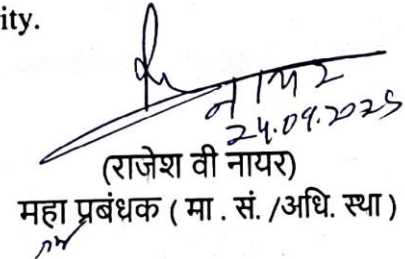 ity.
नायर
24.09.2025
(राजेश वी नायर)
महा प्रबंधक ( मा . सं. /अधि. स्था )